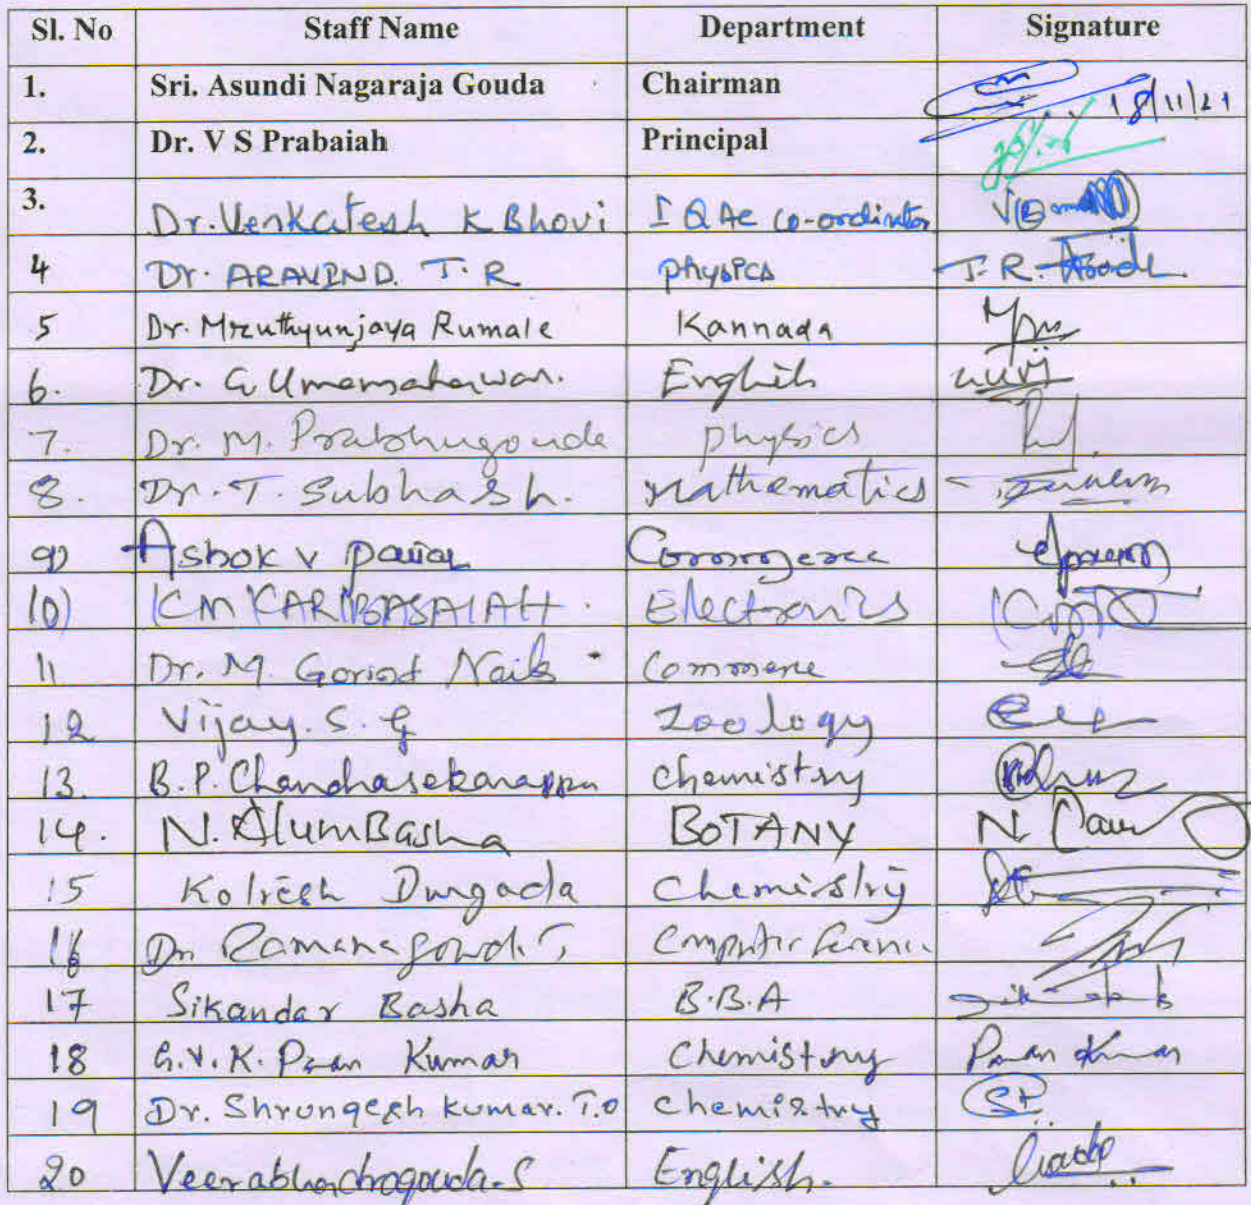 Sl. No Staff Name Department Signature
1. Sri. Asundi Nagaraja Gouda Chairman 18/11/21
2. Dr. V S Prabaiah Principal
3. Dr. Venkatesh K Bhovi IQAC Co-ordinator
4 Dr. ARAVIND. T. R physics T. R.
5 Dr. Mruthyunjaya Rumale Kannada
6. Dr. G Umamaheswari. English
7. Dr. M. Prabhugouda physics
8. Dr. T. Subhash. Mathematics
9) Ashok V pawar Commerce
10) KM KARIBASAIAH. Electronics
11 Dr. M. Govind Naik Commerce
12 Vijay. S. G Zoology
13. B.P. Chandhasekarappa chemistry
14. N. AlumBasha BOTANY N.
15 Kotresh Durgada Chemistry
16 Dr Ramanagowd. Computer Science
17 Sikandar Basha B.B.A
18 G.V.K. Pavan Kumar Chemistry Pavan Kumar
19 Dr. Shrungesh Kumar. T.O chemistry
20 Veerabhadragouda. S English.